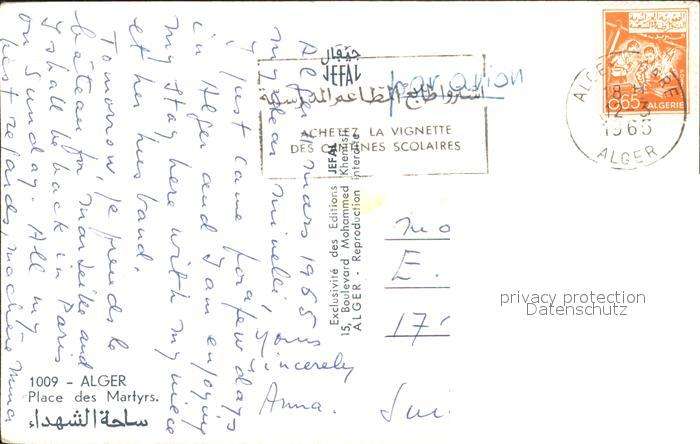 Alger 1 mars 1965
my dear Minelli,
I just came for a few days
in Alger and I am enjoying
my stay here with my niece
et her husband.
Tomorrow, je prends le
bâteau for Marseille and
I shall be back in Paris
on Sunday. All my
best regards, ma chère
Yours
Sincerely
Anna.
par avion
جيفال
JEFAL
ACHETEZ LA VIGNETTE
DES CANTINES SCOLAIRES
Exclusivité des Editions JEFAL
15, Boulevard Mohammed Khemisti
ALGER - Reproduction interdite
0.65 ALGERIE
ALGER
1965
ALGER
E.
17
privacy protection
Datenschutz
1009 - ALGER
Place des Martyrs.
ساحة الشهداء